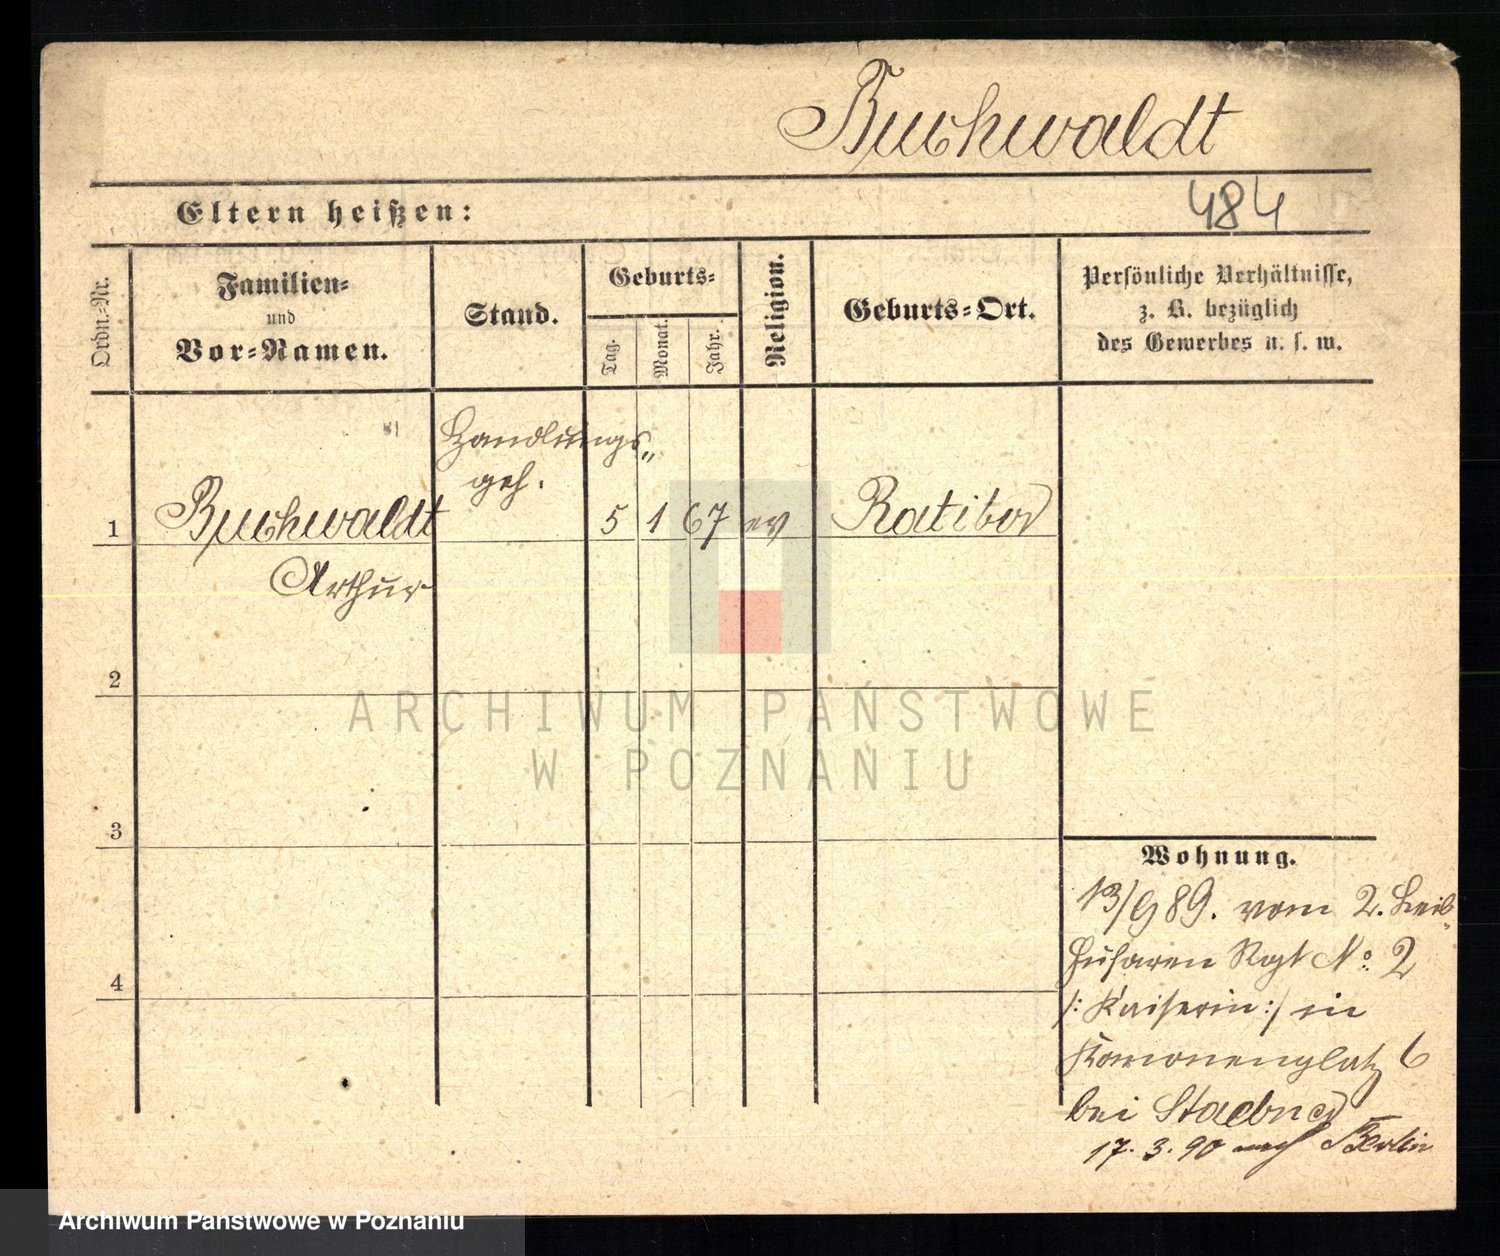 Buchwaldt
Eltern heißen:
484
Ordn.-Nr.
Familien-
und
Vor-Namen.
Stand.
Geburts-
Tag.
Monat.
Jahr.
Religion.
Geburts-Ort.
Persönliche Verhältnisse,
z. B. bezüglich
des Gewerbes u. s. w.
Handlungs-
geh.
1
Buchwaldt
5
1
67
ev
Ratibor
Arthur
2
ARCHIWUM PAŃSTWOWE
W POZNANIU
3
Wohnung.
13/9 89. vom 2. Leib-
Husaren Rgt No. 2
4
/: Kaiserin :/ in
Kanonenplatz 6
bei
17. 3. 90 nach Berlin
Archiwum Państwowe w Poznaniu